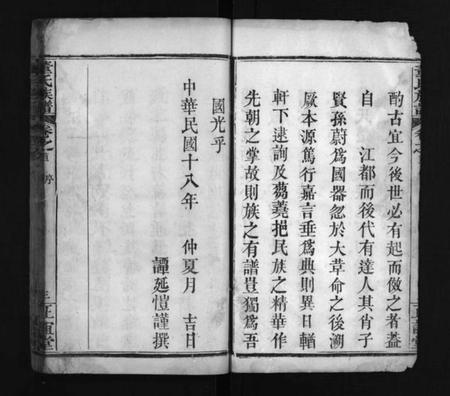 酌古宜今後世必有起而倣之者蓋
自　江都而後代有達人其肖子
賢孫蔚爲國器忽於大革命之後溯
厥本源篤行嘉言垂爲典則異日輶
軒下逮詢及蒭蕘挹民族之精華作
先朝之掌故則族之有譜豈獨爲吾
國光乎
中華民國十八年　仲夏月　吉日
譚延愷謹撰
董氏族譜
卷之首
序
直堂